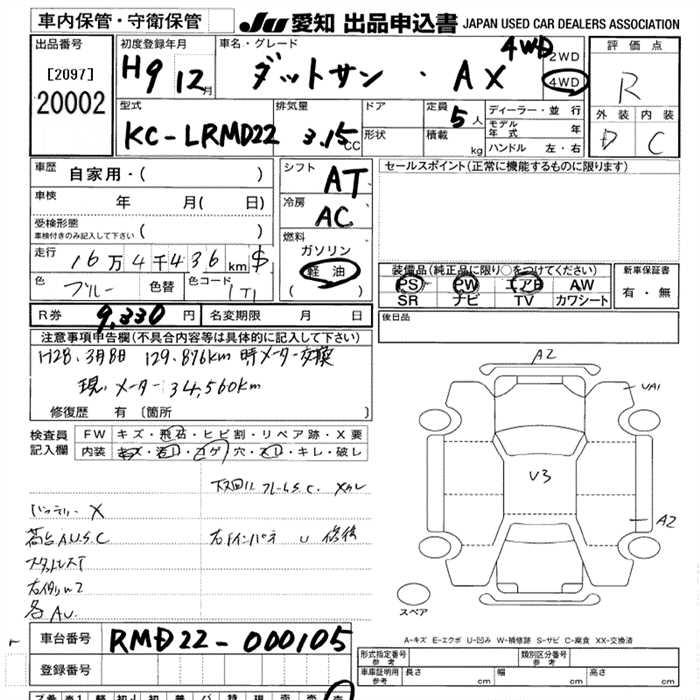 車内保管・守衛保管 JU 愛知 出品申込書 JAPAN USED CAR DEALERS ASSOCIATION
出品番号 初度登録年月 車名・グレード 4WD 2WD 評価点
[2097] H9 12月 ダットサン ・ AX 4WD R
20002 外装 内装
型式 排気量 ドア 定員 5人 ディーラー・並行
KC-LRMD22 3.15CC 形状 積載 kg モデル年式 年 D C
ハンドル 左・右
車歴 自家用・( ) シフト AT セールスポイント(正常に機能するものに限ります)
車検 年 月( 日) 冷房 AC
受検形態 ( )
車検付きのみ記入して下さい
燃料
走行 16万4千436km $ ガソリン
軽油 装備品(純正品に限り○をつけてください) 新車保証書
色 ブルー 色替 色コード ( ) PS PW エアB AW 有・無
SR ナビ TV カワシート
R券 9,330円 名変期限 月 日 後日品
注意事項申告欄(不具合内容等は具体的に記入して下さい)
H28.3月8日 129,876km時メーター交換
現メーター34,560km
修復歴 有 〔箇所 〕
AZ
UA1
検査員 FW キズ・飛石・ヒビ割・リペア跡・X要
記入欄 内装 キズ・汚れ・コゲ・穴・スレ・キレ・破レ
U3
下回り フレームS.C.
バッテリー X
荷台A.U.S.C 右インパネ U
AZ
各AU.
スペア
A-キズ E-エクボ U-凹み W-補修跡 S-サビ C-腐食 XX-交換済
車台番号 RMD22-000105
登録番号
形式指定番号 参考 類別区分番号 参考
車庫証明用 参考 長さ cm 幅 cm 高さ cm